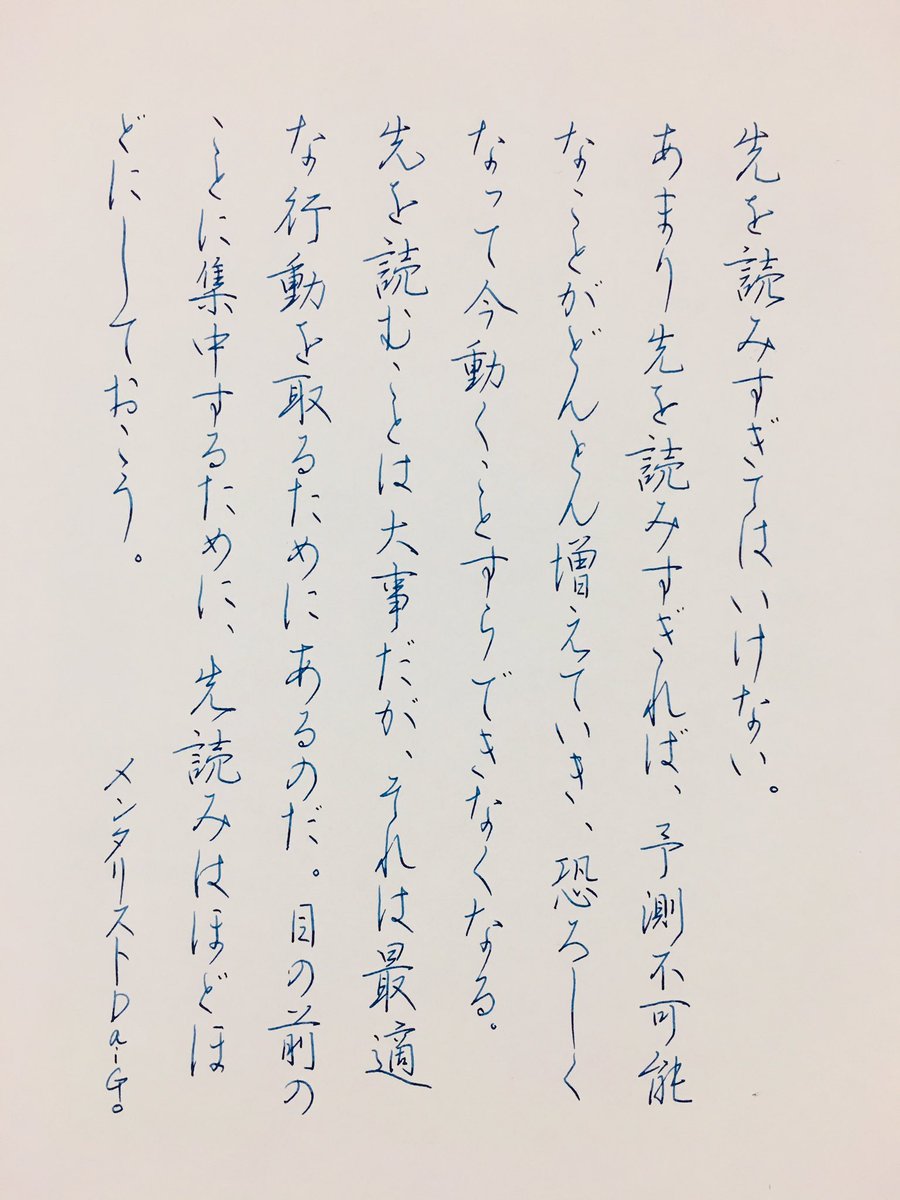 先を読みすぎてはいけない。
あまり先を読みすぎれば、予測不可能
なことがどんどん増えていき、恐ろしく
なって今動くことすらできなくなる。
先を読むことは大事だが、それは最適
な行動を取るためにあるのだ。目の前の
ことに集中するために、先読みはほどほ
どにしておこう。
メンタリストDaiGo